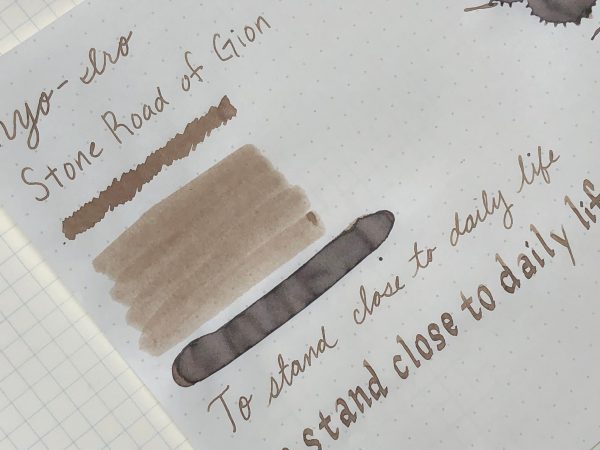 nyo-iro
Stone Road of Gion
To stand close to daily life
stand close to daily lif